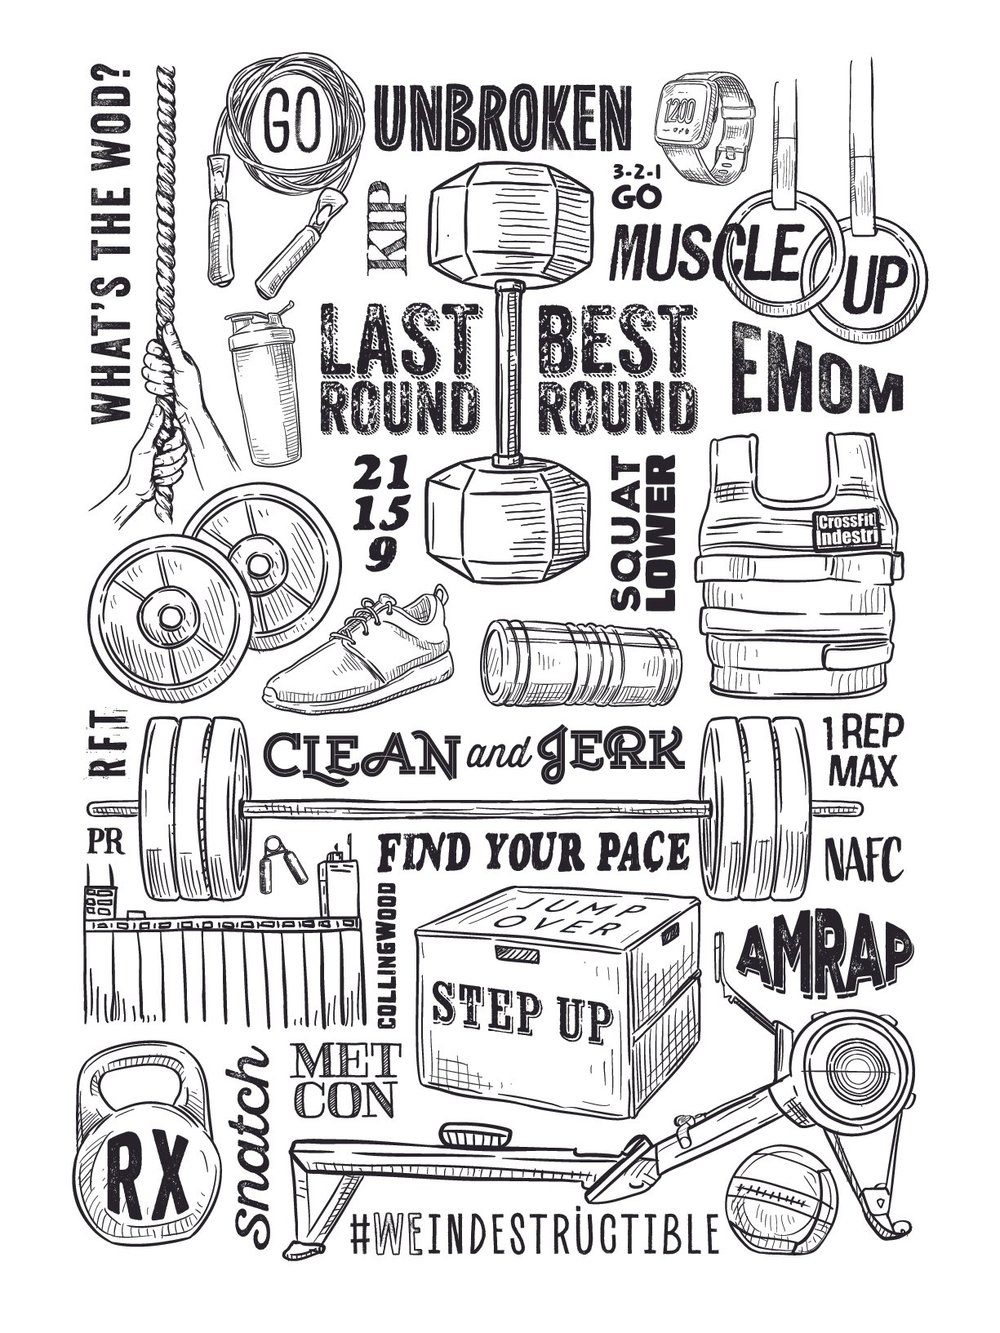 WHAT'S THE WOD?
GO
UNBROKEN
1200
3-2-1
GO
KIP
MUSCLE
UP
LAST
ROUND
BEST
ROUND
EMOM
21
15
9
SQUAT
LOWER
CrossFit
Indestri
RFT
CLEAN and JERK
1 REP
MAX
PR
FIND YOUR PACE
NAFC
COLLINGWOOD
JUMP
OVER
STEP UP
AMRAP
MET
CON
RX
Snatch
#WEINDESTRÜCTIBLE